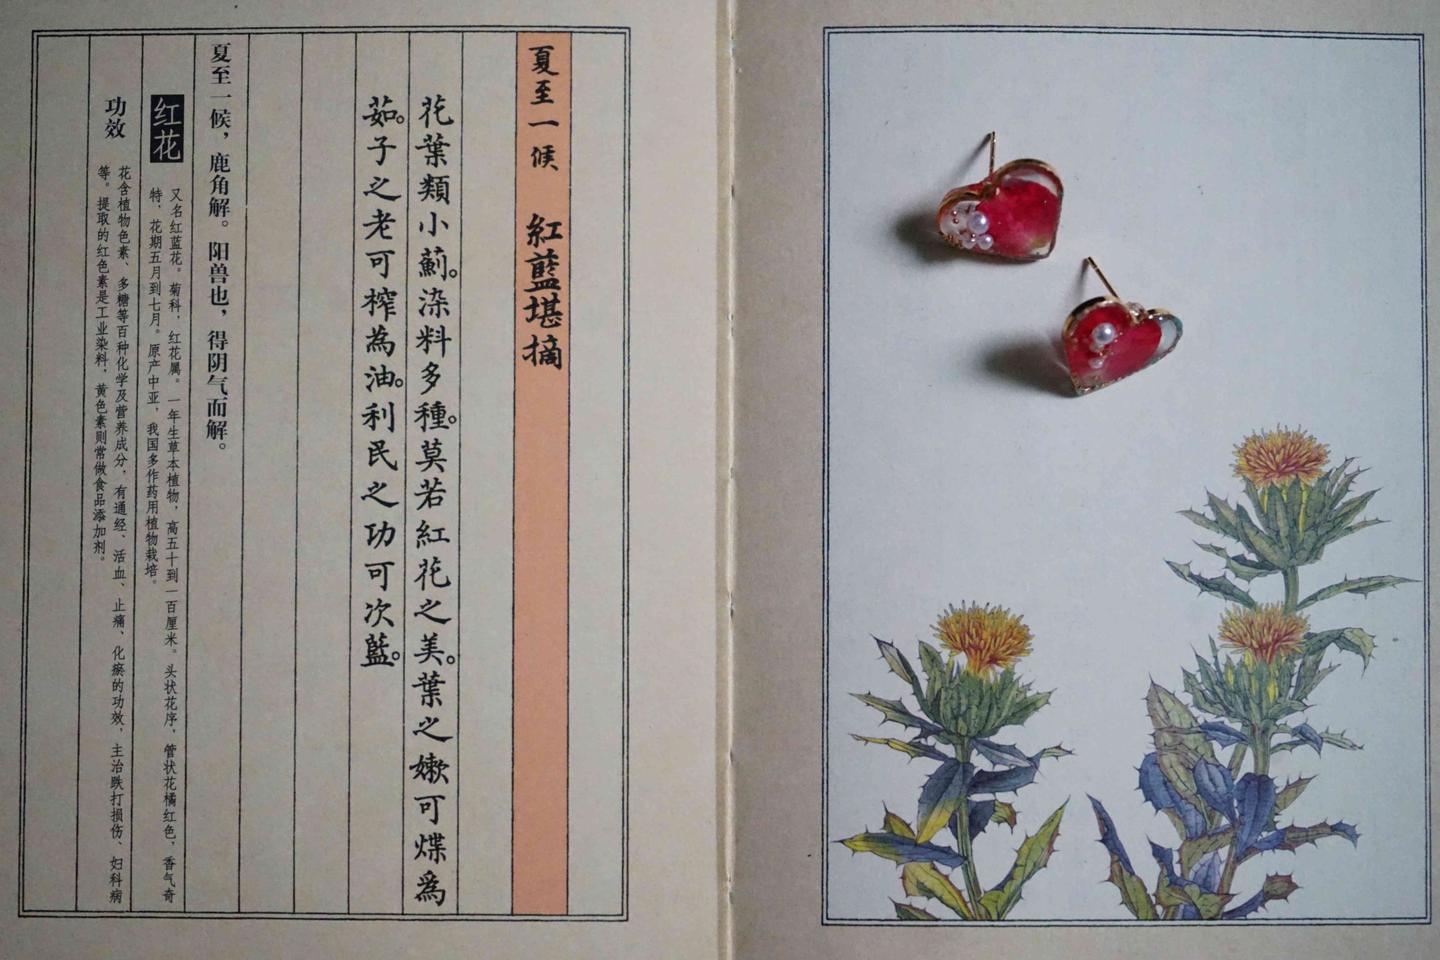 夏至一候 紅藍堪摘
花葉類小薊。染料多種。莫若紅花之美。葉之嫩可煠為
茹。子之老可榨為油。利民之功可次藍。
夏至一候，鹿角解。阳兽也，得阴气而解。
红花
又名红蓝花。菊科，红花属。一年生草本植物，高五十到一百厘米。头状花序，管状花橘红色，香气奇
特，花期五月到七月。原产中亚，我国多作药用植物栽培。
功效
花含植物色素、多糖等百种化学及营养成分，有通经、活血、止痛、化瘀的功效，主治跌打损伤、妇科病
等。提取的红色素是工业染料，黄色素则常做食品添加剂。